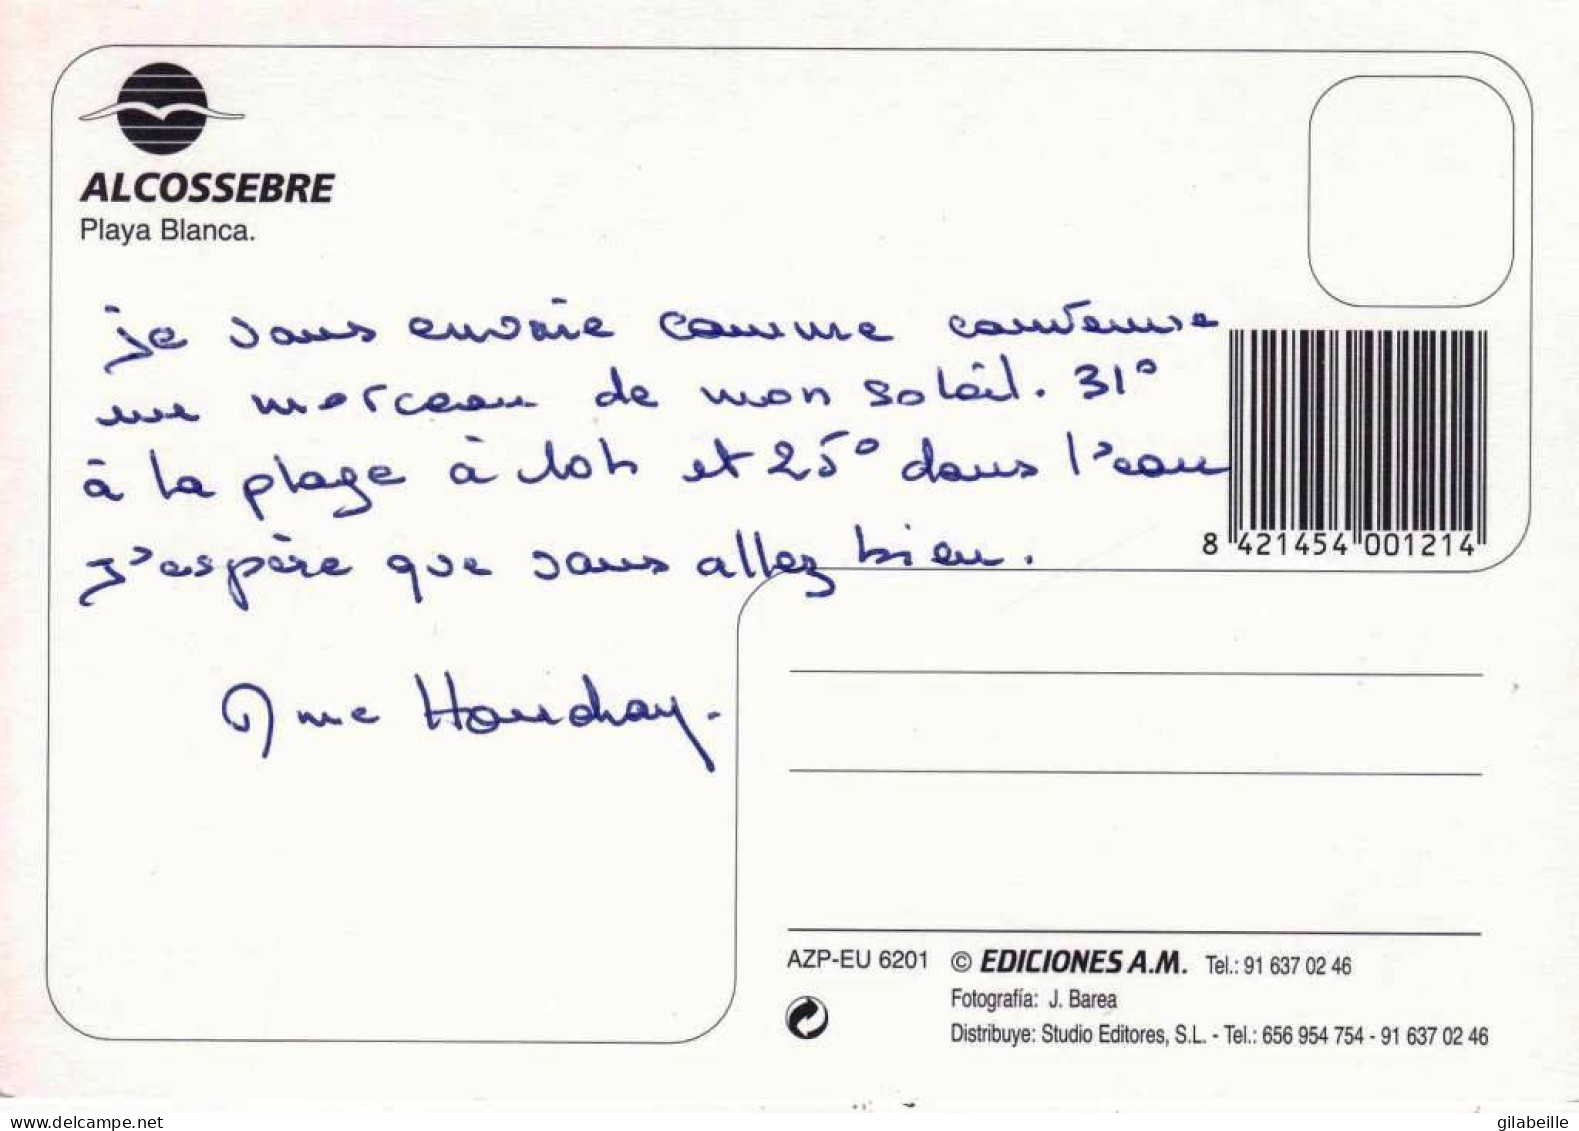 ALCOSSEBRE
Playa Blanca.
je vous envoie comme convenue
un morceau de mon soleil. 31°
à la plage à 10h et 25° dans l'eau
J'espère que vous allez bien.
Mme
8 421454 001214
AZP-EU 6201 © EDICIONES A.M. Tel.: 91 637 02 46
Fotografía: J. Barea
Distribuye: Studio Editores, S.L. - Tel.: 656 954 754 - 91 637 02 46
www.delcampe.net
gilabeille